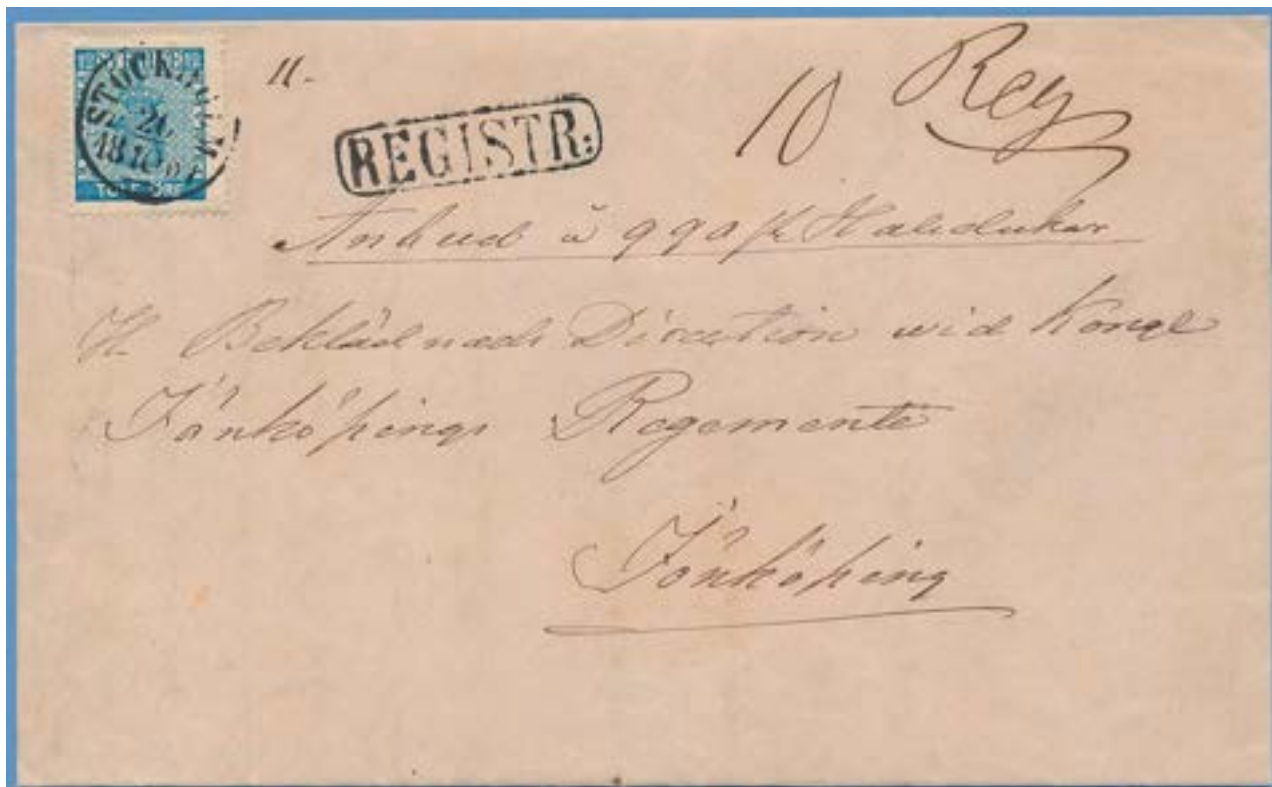 STOCKHOLM
21
10
TOLF ÖRE
11.
REGISTR:
10 Reg
Anbud å 990 st Halsdukar
Beklädnads Direction wid Kongl
Jönköpings Regemente
Jönköping